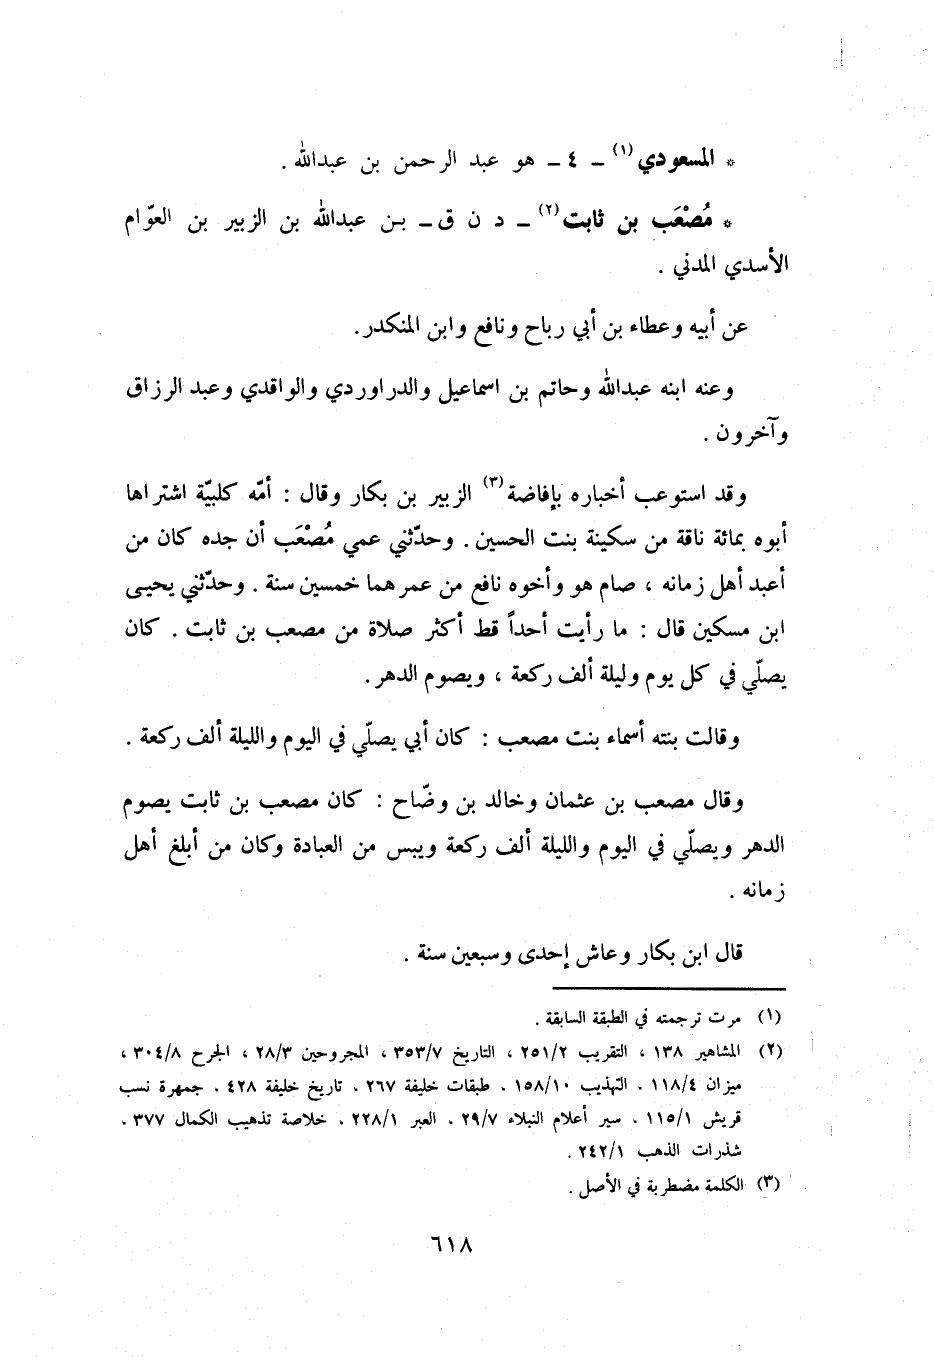 * المسعودي(١) ـ ٤ ـ هو عبد الرحمن بن عبدالله .
* مُصْعَب بن ثابت(٢) ـ د ن ق ـ بن عبدالله بن الزبير بن العوّام
الأسدي المدني .
عن أبيه وعطاء بن أبي رباح ونافع وابن المنكدر.
وعنه ابنه عبدالله وحاتم بن اسماعيل والدراوردي والواقدي وعبد الرزاق
وآخرون .
وقد استوعب أخباره بإفاضة(٣) الزبير بن بكار وقال : أمّه كلبيّة اشتراها
أبوه بمائة ناقة من سكينة بنت الحسين . وحدّثني عمي مُصْعَب أن جده كان من
أعبد أهل زمانه ، صام هو وأخوه نافع من عمرهما خمسين سنة . وحدّثني يحيى
ابن مسكين قال : ما رأيت أحداً قط أكثر صلاة من مصعب بن ثابت . كان
يصلّي في كل يوم وليلة ألف ركعة ، ويصوم الدهر .
وقالت بنته أسماء بنت مصعب : كان أبي يصلّي في اليوم والليلة ألف ركعة .
وقال مصعب بن عثمان وخالد بن وضّاح : كان مصعب بن ثابت يصوم
الدهر ويصلّي في اليوم والليلة ألف ركعة ويبس من العبادة وكان من أبلغ أهل
زمانه .
قال ابن بكار وعاش إحدى وسبعين سنة .
(١) مرت ترجمته في الطبقة السابقة .
(٢) المشاهير ١٣٨ ، التقريب ٢٥١/٢ ، التاريخ ٣٥٣/٧ ، المجروحين ٢٨/٣ ، الجرح ٣٠٤/٨ ،
ميزان ١١٨/٤ . التهذيب ١٥٨/١٠ . طبقات خليفة ٢٦٧ . تاريخ خليفة ٤٢٨ . جمهرة نسب
قريش ١١٥/١ . سير أعلام النبلاء ٢٩/٧ . العبر ٢٢٨/١ . خلاصة تذهيب الكمال ٣٧٧ .
شذرات الذهب ٢٤٢/١ .
(٣) الكلمة مضطربة في الأصل .
٦١٨